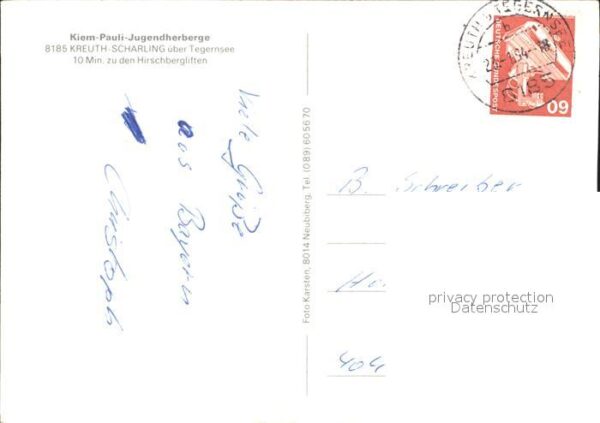 Kiem-Pauli-Jugendherberge
8185 KREUTH-SCHARLING über Tegernsee
10 Min. zu den Hirschbergliften
Viele Grüße
aus Bayern
Christoph
Foto Karsten, 8014 Neubiberg, Tel. (089) 605670
B. Schreiber
404
privacy protection
Datenschutz
DEUTSCHE BUNDESPOST
60
KREUTH TEGERNSEE
8185